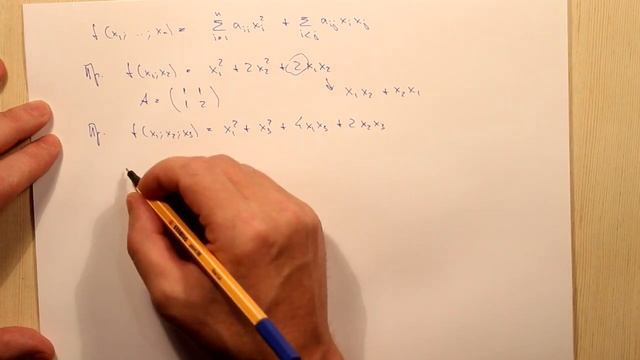 f(x₁; ...; xₙ) = ∑ⁿᵢ₌₁ aᵢᵢxᵢ² + ∑ᵢ<ⱼ aᵢⱼxᵢxⱼ
Пр. f(x₁; x₂) = x₁² + 2x₂² + 2x₁x₂
A = (1 1 / 1 2) x₁x₂ + x₂x₁
Пр. f(x₁; x₂; x₃) = x₁² + x₃² + 4x₁x₃ + 2x₂x₃